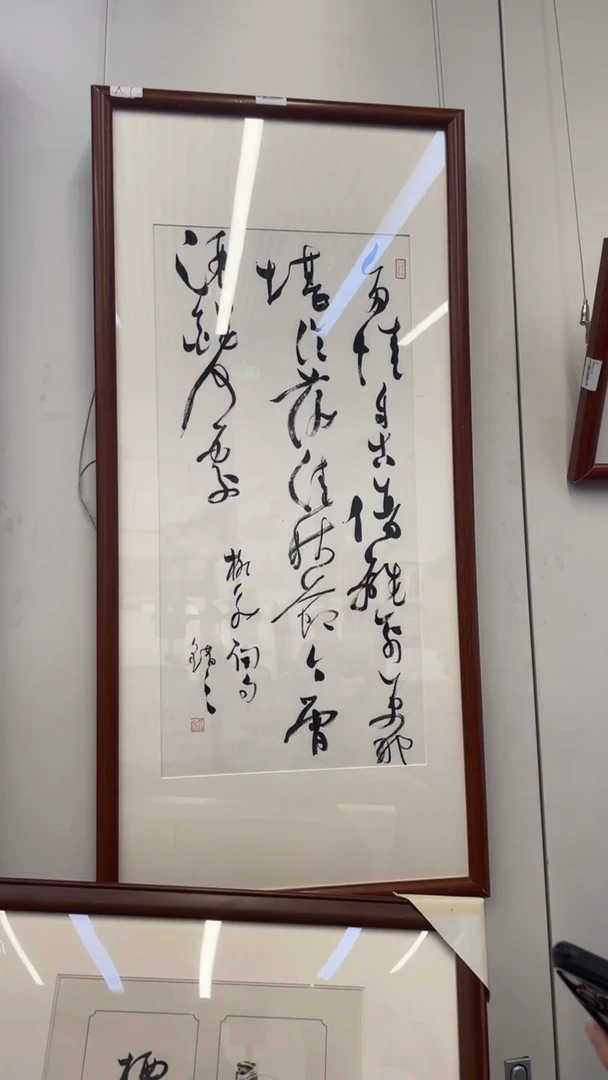 多情自古傷離別更那
堪冷落清秋節今宵
酒醒何處
柳永詞句